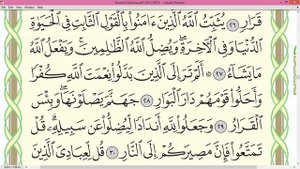 قَرَارٍ ٢٦ يُثَبِّتُ ٱللَّهُ ٱلَّذِينَ ءَامَنُوا۟ بِٱلْقَوْلِ ٱلثَّابِتِ فِى ٱلْحَيَوٰةِ
ٱلدُّنْيَا وَفِى ٱلْـَٔاخِرَةِ ۖ وَيُضِلُّ ٱللَّهُ ٱلظَّـٰلِمِينَ ۚ وَيَفْعَلُ ٱللَّهُ
مَا يَشَآءُ ٢٧ ۞ أَلَمْ تَرَ إِلَى ٱلَّذِينَ بَدَّلُوا۟ نِعْمَتَ ٱللَّهِ كُفْرًا
وَأَحَلُّوا۟ قَوْمَهُمْ دَارَ ٱلْبَوَارِ ٢٨ جَهَنَّمَ يَصْلَوْنَهَا ۖ وَبِئْسَ
ٱلْقَرَارُ ٢٩ وَجَعَلُوا۟ لِلَّهِ أَندَادًا لِّيُضِلُّوا۟ عَن سَبِيلِهِۦ ۗ قُلْ
تَمَتَّعُوا۟ فَإِنَّ مَصِيرَكُمْ إِلَى ٱلنَّارِ ٣٠ قُل لِّعِبَادِىَ ٱلَّذِينَ